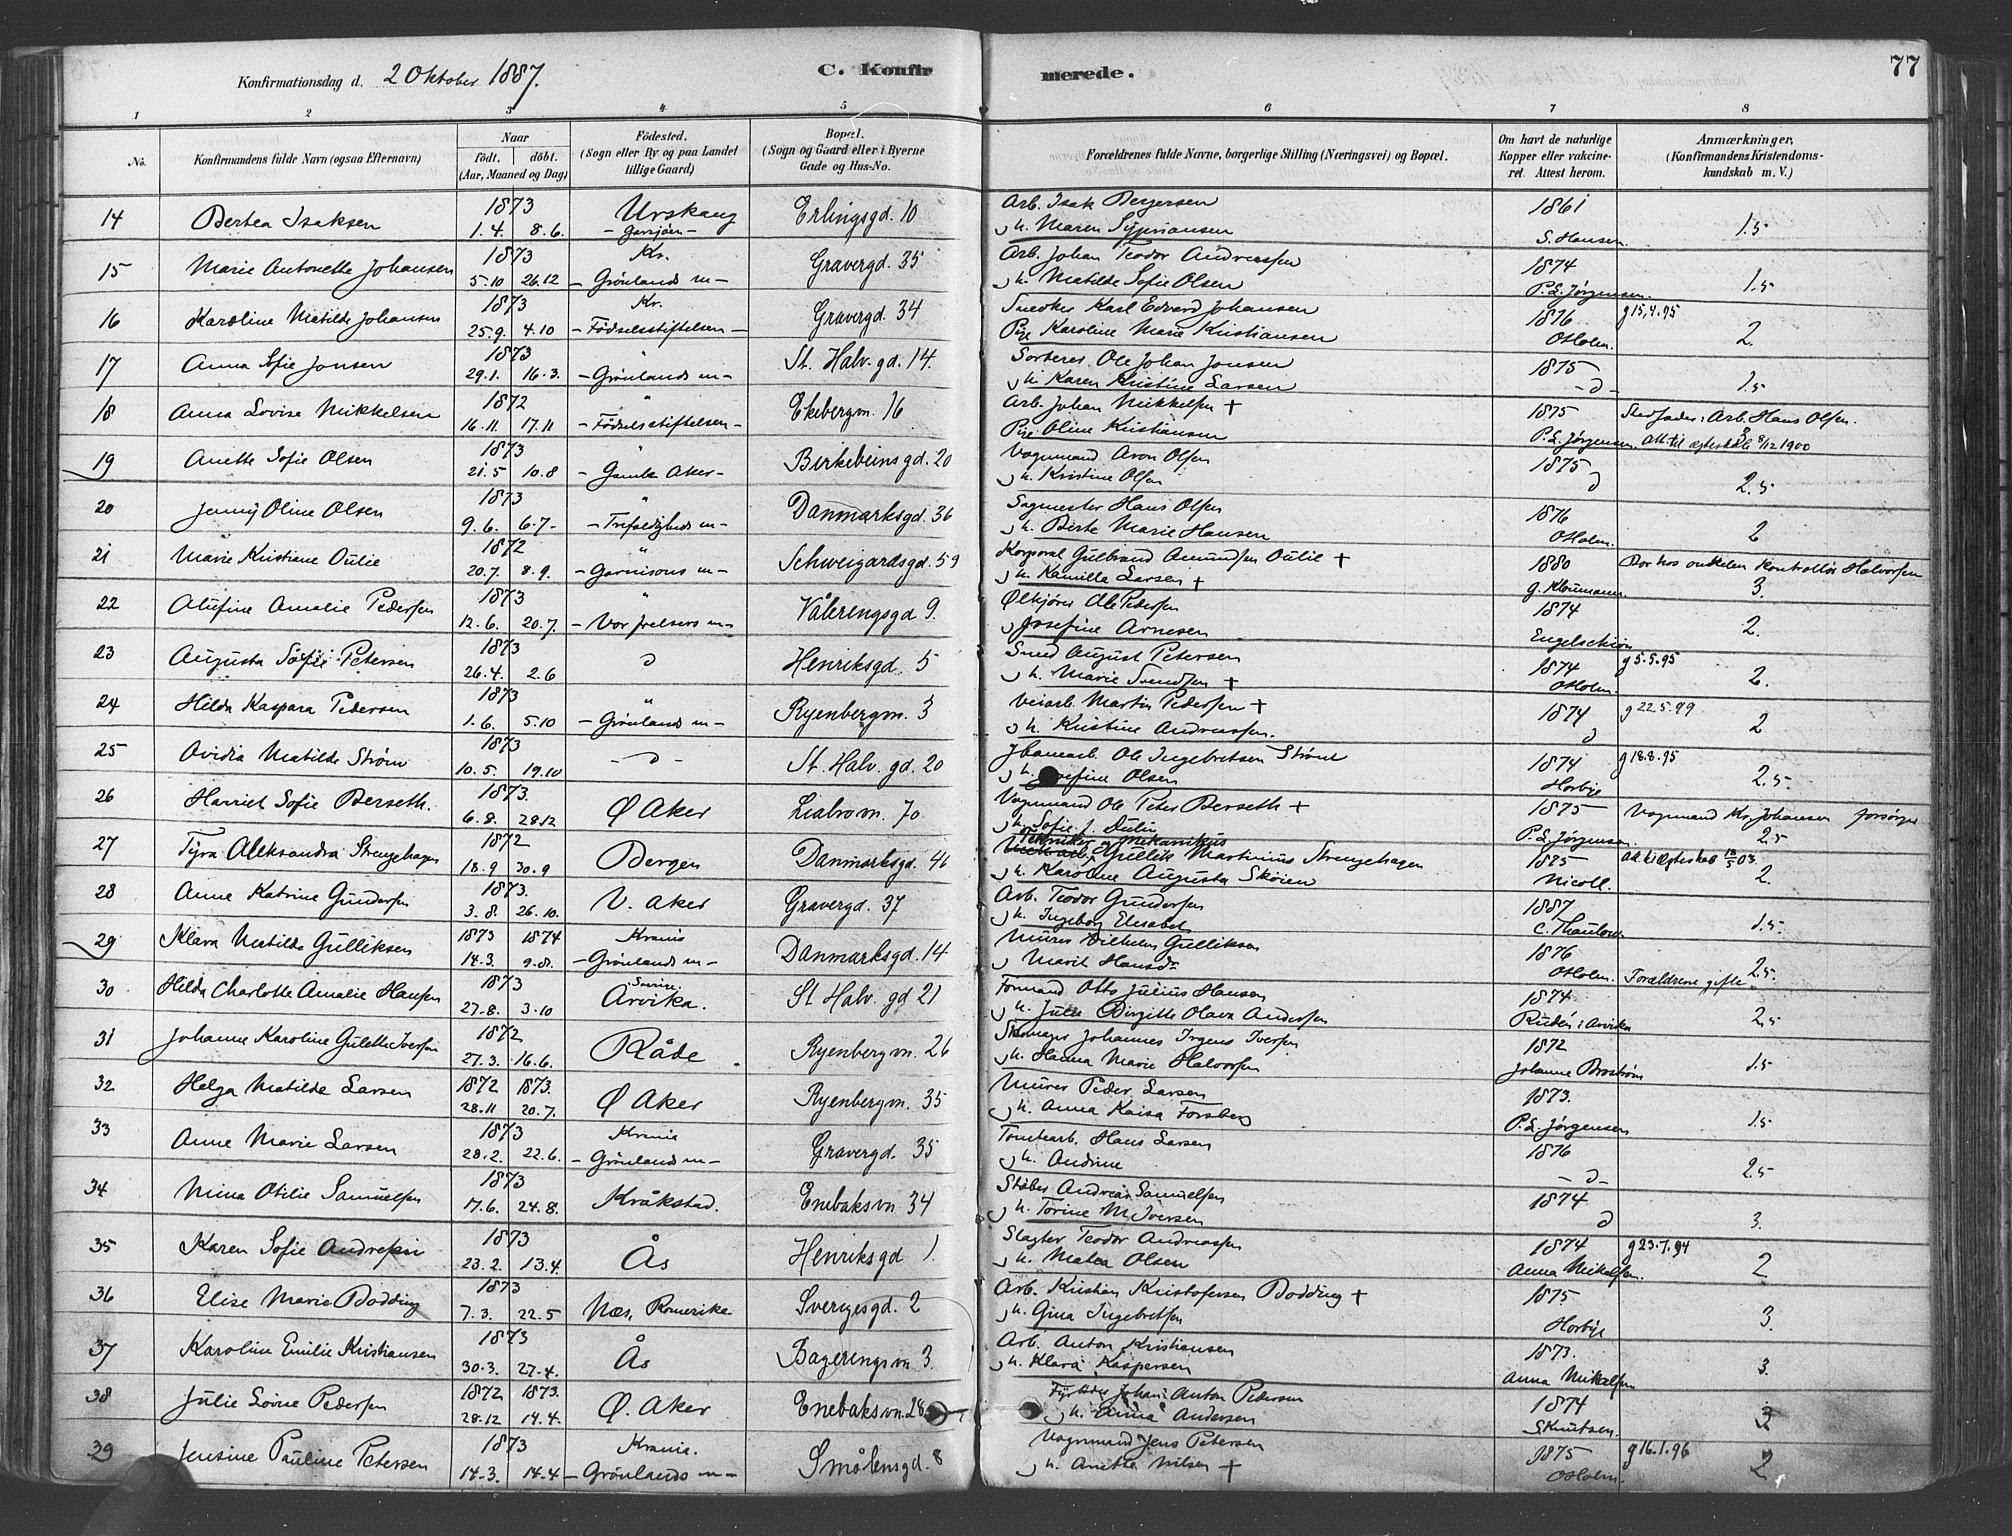 Konfirmationsdag d. 2 Oktober 1887. C. Konfir merede. 77
1 2 3 4 5 6 7 8
No. Konfirmandens fulde Navn (ogsaa Efternavn) Naar födt. döbt. (Aar, Maaned og Dag) Födested. (Sogn eller By og paa Landet tillige Gaard) Bopæl. (Sogn og Gaard eller i Byerne Gade og Hus-No. Forældrenes fulde Navne, borgerlige Stilling (Næringsvei) og Bopæl. Om havt de naturlige Kopper eller vakcineret. Attest herom. Anmærkninger, (Konfirmandens Kristendomskundskab m. V.)
14 Bertea Isaksen 1873 1.4. 8.6. Urskoug - Garsjøen - Erlingsgd. 10 Arb. Isak Bergersen h. Maren Syprianson 1861 S. Hansen 1.5
15 Marie Antonette Johansen 1873 5.10 26.12 Kr. - Grønlands m - Gravergd. 35 Arb. Johan Teodor Andreassen h. Matilde Sofie Olsen 1874 P.L. Jørgensen 1.5
16 Karoline Matilde Johansen 1873 25.9. 4.10 Kr. - Födselsstiftelsen - Gravergd. 34 Snedker Karl Edvard Johansen Pige Karoline Marie Kristiansen 1876 O Holm. g 15.4.95 2.
17 Anna Sofie Jonsen 1873 29.1. 16.3. " - Grønlands m - St. Halv. gd. 14. Ole Johan Jonsen h. Karen Kristine Larsen 1875 - d - 1.5
18 Anna Lovise Mikkelsen 1872 16.11. 17.11 " - Födselsstiftelsen - Ekebergvn. 16 Arb. Johan Mikkelsen + Pige Oline Kristiansen 1875 P.L. Jørgensen Stedfader: Arb. Hans Olsen. Att. til ægteskab 8/12 1900
19 Anette Sofie Olsen 1873 21.5 10.8 " - Gamle Aker - Birkebeinsgd. 20 Vognmand Aron Olsen h. Kristine Olsen 1875 d 2.5
20 Jenny Oline Olsen 1873 9.6. 6.7. " - Trefoldigheds m - Danmarksgd. 36 Sagmester Hans Olsen h. Berte Marie Hansen 1876 O Holm. 2
21 Marie Kristiane Oulie 1872 20.7. 8.9. " - Garnisons m - Schweigaardsgd. 59 Korporal Gulbrand Amundsen Oulie + h. Kamilla Larsen + 1880 g. Kloumann Bor hos onkelen kontrollør Halvorsen 3.
22 Alufine Amalie Pedersen 1873 12.6. 20.7. " - Vor frelsers m - Vålerengsgd 9. Ølkjører Ole Pedersen Josefine Arnesen 1874 Engelschiøn 2.
23 Augusta Sofie Petersen 1873 26.4. 2.6 d Henriksgd. 5 Sned August Petersen h. Marie Svendsen + 1874 O Holm g 5.5.95 2.
24 Hilda Kaspara Pedersen 1873 1.6. 5.10 " - Grønlands m - Ryenbergvn. 3 Veiarb. Martin Pedersen + h. Kristine Andreassen. 1874 d g 22.5.99 2
25 Ovidia Matilde Strøm 1873 10.5. 19.10 - d - St. Halv. gd. 20 Ole Ingebretsen Strøm h. Josefine Olsen 1874 Horbye g 18.8.95 2.5
26 Harriet Sofie Berseth. 1873. 6.8. 28.12 Ø Aker Liabrovn. 70 Vognmand Ole Peter Berseth + h. Sofie J. Dulin 1875 P.L. Jørgensen Vognmand Kr. Johansen forsørger 2.5
27 Tyra Aleksandra Strengehagen 1872 18.9 30.9 Bergen Danmarksgd. 46 Tekniker og Mekanikus Gullik Martinius Strengehagen h. Karoline Augusta Skøien 1875 Nicoll. Att. til Ægteskab 12/5 03. 2.
28 Anne Katrine Gundersen 1873. 3.8. 26.10. V. Aker Gravergd. 37 Arb. Teodor Gundersen h. Ingeborg Elisabet 1887 C. Thaulow 1.5.
29 Klara Matilda Gulliksen 1873 1874 14.3. 9.8. Krania - Grønlands m - Danmarksgd. 14 Murer Vilhelm Gulliksen Marit Hansdr 1876 O Holm. 2.5. Forældrene gifte
30 Hilda Charlotte Amalie Hansen 1873 27.8. 3.10 Sverige. Arvika. St Halv. gd 21 Formand Otto Julius Hansen h. Julie Birgitte Olava Andersen 1874 Rudén i Arvika 2.5
31 Johanne Karoline Gulette Iversen 1872 27.3. 16.6. Råde Ryenbergvn. 26 Skomager Johannes Irgens Iversen h. Hanna Marie Halvorsen 1872 Johanne Brostrøm 1.5
32 Helga Matilde Larsen 1872 1873. 28.11 20.7. Ø Aker Ryenbergvn. 35 Murer Peder Larsen h. Anna Kaisa Forsberg 1873. P.L. Jørgensen 1.5
33 Anne Marie Larsen 1873 28.2. 22.6. Krania - Grønlands m - Gravergd. 35 Tomtearb. Hans Larsen h. Andrine 1876 - d - 2.5
34 Mina Otilie Samuelsen 1873 17.6. 24.8. Kråkstad. Enebaksvn 34 Støber Andreas Samuelsen h. Torine M. Iversen 1874 d 3.
35 Karen Sofie Andresen 1873 23.2. 13.4. Ås Henriksgd 1. Slagter Teodor Andreassen h. Matea Olsen 1874 Anna Mikalsen. g 23.7.94 2
36 Elise Marie Bodding 1873 7.3. 22.5 Næs, Romerike Sverigesgd. 2 Arb. Kristian Kristofersen Bodding + h. Gina Ingebretsen 1875. Horbye 3.
37 Karoline Emilie Kristiansen 1873 30.3. 27.4. Ås Bageringsvn 3. Arb. Anton Kristiansen h. Klara Kaspersen 1873. Anna Mikalsen 3.
38 Julie Lovise Pedersen 1872 1873. 28.12 14.4. Ø. Aker Enebaksvn. 28 Fyrbøder Johan Anton Pedersen h. Anna Andersen 1874 S Knutsen. 3
39 Jensine Pauline Petersen 1873 14.3. 14.4 Krania. - Grønlands m - Smålensgd. 8 Vognmand Jens Petersen h. Anette Nilsen + 1875 O Holm. g 16.1.96 2